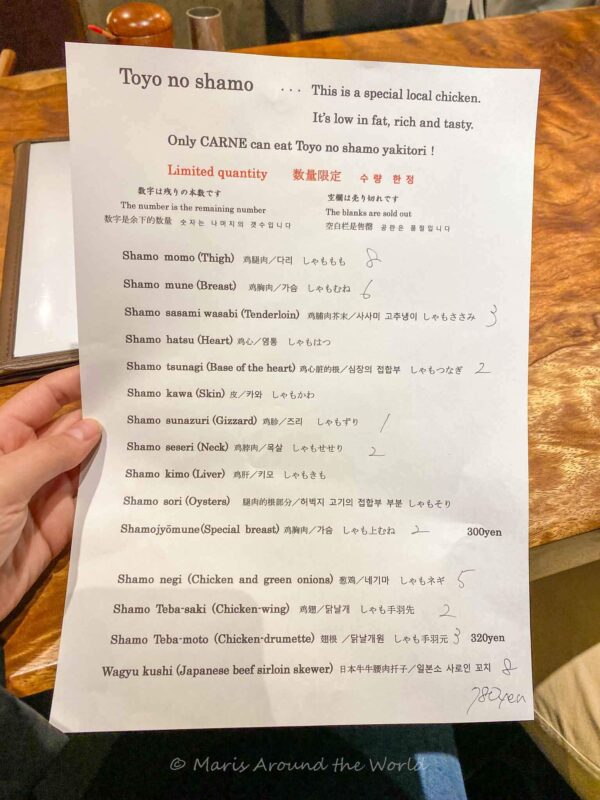 Toyo no shamo ... This is a special local chicken.
It's low in fat, rich and tasty.
Only CARNE can eat Toyo no shamo yakitori !
Limited quantity 数量限定 수량 한정
数字は残りの本数です
The number is the remaining number
数字是余下的数量 숫자는 나머지의 갯수입니다
空欄は売り切れです
The blanks are sold out
空白栏是售罄 공란은 품절입니다
Shamo momo (Thigh) 鸡腿肉/다리 しゃももも 8
Shamo mune (Breast) 鸡胸肉/가슴 しゃもむね 6
Shamo sasami wasabi (Tenderloin) 鸡脯肉芥末/사사미 고추냉이 しゃもささみ 3
Shamo hatsu (Heart) 鸡心/염통 しゃもはつ
Shamo tsunagi (Base of the heart) 鸡心脏的根/심장의 접합부 しゃもつなぎ 2
Shamo kawa (Skin) 皮/카와 しゃもかわ
Shamo sunazuri (Gizzard) 鸡胗/즈리 しゃもずり 1
Shamo seseri (Neck) 鸡脖肉/목살 しゃもせせり 2
Shamo kimo (Liver) 鸡肝/키모 しゃもきも
Shamo sori (Oysters) 腿肉的根部分/허벅지 고기의 접합부 부분 しゃもそり
Shamojyōmune(Special breast) 鸡胸肉/가슴 しゃも上むね 2 300yen
Shamo negi (Chicken and green onions) 葱鸡/네기마 しゃもネギ 5
Shamo Teba-saki (Chicken-wing) 鸡翅/닭날개 しゃも手羽先 2
Shamo Teba-moto (Chicken-drumette) 翅根 /닭날개원 しゃも手羽元 3 320yen
Wagyu kushi (Japanese beef sirloin skewer) 日本牛牛腰肉扦子/일본소 사로인 꼬치 8
780yen
© Maris Around the World